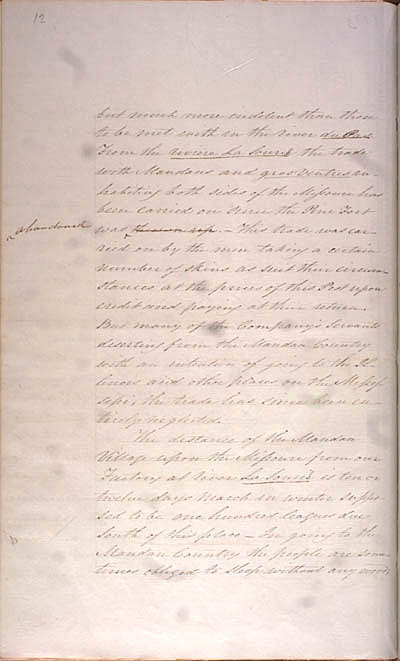 12
but much more indolent than those
to be met with in the River du Pas.
From the riviere La Souris the trade
with Mandans and gros Ventres in-
habiting both sides of the Missouri has
been carried on since the Pine Fort
abandoned
was thrown up. - This trade was car-
ried on by the men taking a certain
number of skins as suit their circum
stances at the prices of this Post upon
credit and paying at their return.
But many of the Company's Servants
deserting from the Mandan Country
with an intention of going to the Il-
linois and other places on the Missis
sipi, the trade has since been en-
tirely neglected.
The distance of the Mandan
Village upon the Missouri from our
Factory at River La Souris is ten or
twelve days march in winter suppo-
sed to be one hundred leagues due
South of this place - In going to the
Mandan Country the people are some
times obliged to sleep without any wood